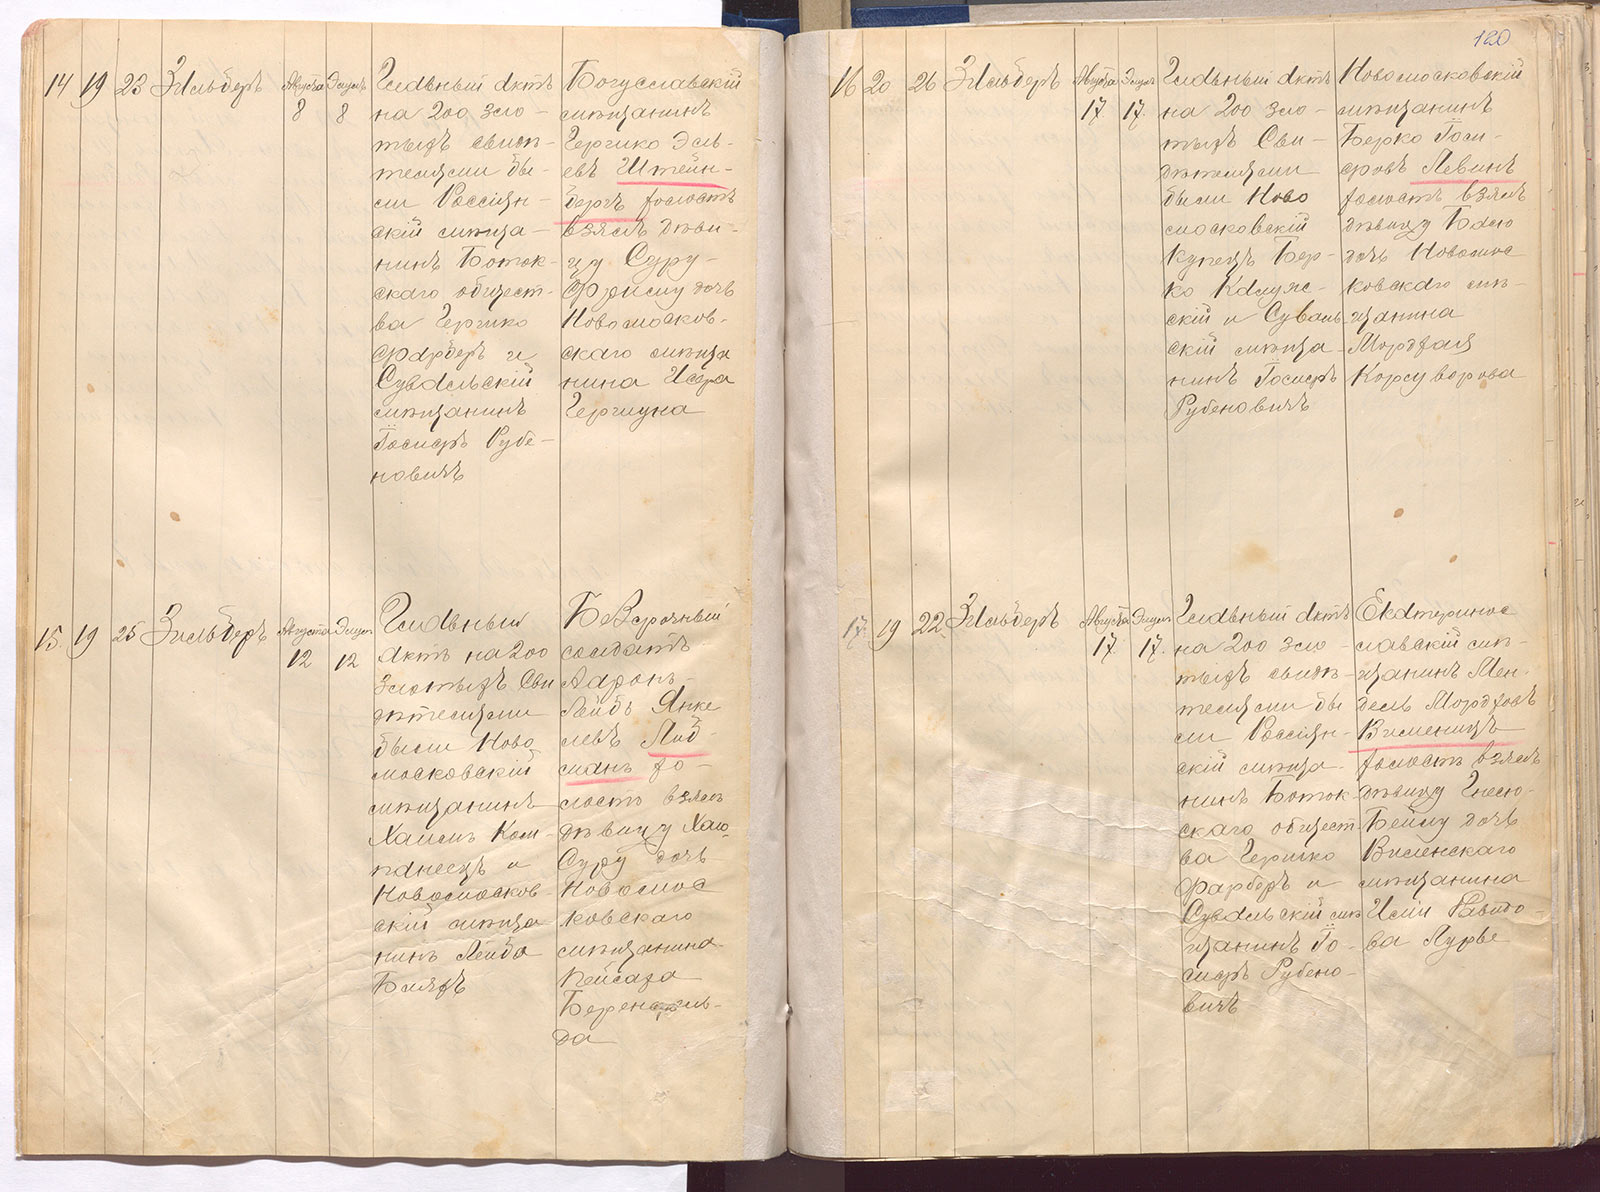 120
14 19 23 Зильберъ Августа 8 Элулъ 8
Главный актъ
на 200 зло-
тыхъ свидѣ-
телями бы-
ли Россіян-
скій мѣща-
нинъ Боток-
скаго общест-
ва Гершко
Фарберъ и
Сувальскій
мѣщанинъ
Іосифъ Рубе-
новичъ
Богуславскій
мѣщанинъ
Гершко Эль-
евъ Штейн-
бергъ холостъ
взялъ дѣви-
цу Суру-
Фрейду дочь
Новомосков-
скаго мѣща
нина
15 19 25 Зильберъ Августа 12 Элулъ 12
Главный
актъ на 200
злотыхъ Сви
дѣтелями
были Ново
московскій
мѣщанинъ
Хаимъ Ком-
панеецъ и
Новомосков-
скій мѣща
нинъ Лейба
Безсрочный
солдатъ
Ааронъ-
Лейбъ Янке
левъ Либ-
манъ хо-
лостъ взялъ
дѣвицу Хаю-
Суру дочь
Новомос
ковскаго
мѣщанина
Пейсаха
16 20 26 Зильберъ Августа 17 Элулъ 17
Главный актъ
на 200 зло-
тыхъ Сви-
дѣтелями
были Ново
московскій
Купецъ Бер-
ко Калужс-
скій и Суваль
скій мѣща-
нинъ Іосифъ
Рубеновичъ
Новомосковскій
мѣщанинъ
Берко Іоси-
фовъ Левинъ
холостъ взялъ
дѣвицу Басю
дочь Новомос
ковскаго мѣ-
щанина
Мордхая
Корсуворова
17 19 22 Зильберъ Августа 17 Элулъ 17
Главный актъ
на 200 зло-
тыхъ свидѣ-
телями бы
ли Россіян-
скій мѣща-
нинъ Боток-
скаго общест
ва Гершко
Фарберъ и
Сувальскій мѣ
щанинъ Іо-
сифъ Рубено-
вичъ
Екатеринос
лавскій мѣ-
щанинъ Мен-
дель Мордховъ
Виленчикъ
холостъ взялъ
дѣвицу Гнесю-
Бейлу дочь
Виленскаго
мѣщанина
Давидо-
ва Лурье